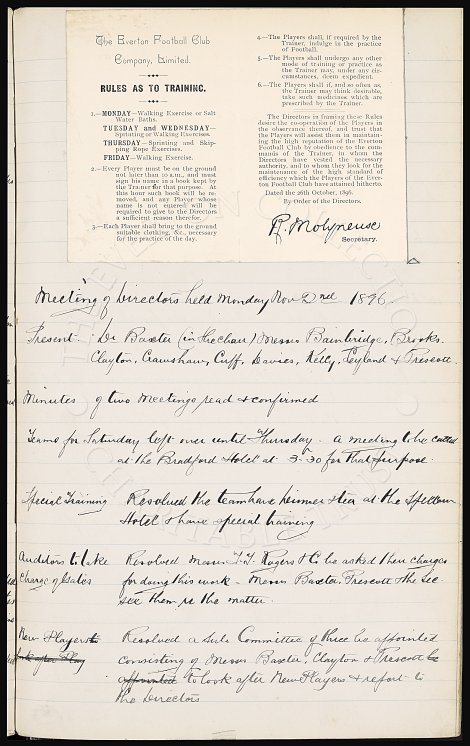 The Everton Football Club
Company, Limited.
RULES AS TO TRAINING.
1.—MONDAY—Walking Exercise or Salt
Water Baths.
TUESDAY and WEDNESDAY—
Sprinting or Walking Exercises.
THURSDAY—Sprinting and Skip-
ping Rope Exercises.
FRIDAY—Walking Exercise.
2.—Every Player must be on the ground
not later than 10 a.m., and must
sign his name in a book kept by
the Trainer for that purpose. At
this hour such book will be re-
moved, and any Player whose
name is not entered will be
required to give to the Directors
a sufficient reason therefor.
3.—Each Player shall bring to the ground
suitable clothing, &c., necessary
for the practice of the day.
4.—The Players shall, if required by the
Trainer, indulge in the practice
of Football.
5.—The Players shall undergo any other
mode of training or practice as
the Trainer may, under any cir-
cumstances, deem expedient.
6.—The Players shall if, and so often as,
the Trainer may think desirable,
take such medicines which are
prescribed by the Trainer.
The Directors in framing these Rules
desire the co-operation of the Players in
the observance thereof, and trust that
the Players will assist them in maintain-
ing the high reputation of the Everton
Football Club by obedience to the com-
mands of the Trainer, in whom the
Directors have vested the necessary
authority, and to whom they look for the
maintenance of the high standard of
efficiency which the Players of the Ever-
ton Football Club have attained hitherto.
Dated the 26th October, 1896.
By Order of the Directors.
R. Molyneux
Secretary.
Meeting of Directors held Monday Nov 2nd 1896
Present: Dr Baxter (in the chair) Messrs Bainbridge, Brooks.
Clayton, Crawshaw, Cuff, Davies, Kelly, Leyland & Prescott
Minutes of two meetings read & confirmed
Teams for Saturday left over until Thursday. A meeting to be called
at the Bradford Hotel at 3-30 for that purpose.
Special Training Resolved the team have dinner & tea at the Spellow
Hotel & have special training
Auditors to take Resolved Messrs Rogers & Co be asked their charges
charge of Gates for doing this work. Messrs Baxter, Prescott & the Sec
see them re the matter.
New Players to Resolved a Sub Committee of three be appointed
look after Play consisting of Messrs Baxter, Clayton & Prescott be
appointed to look after New Players & report to
the Directors